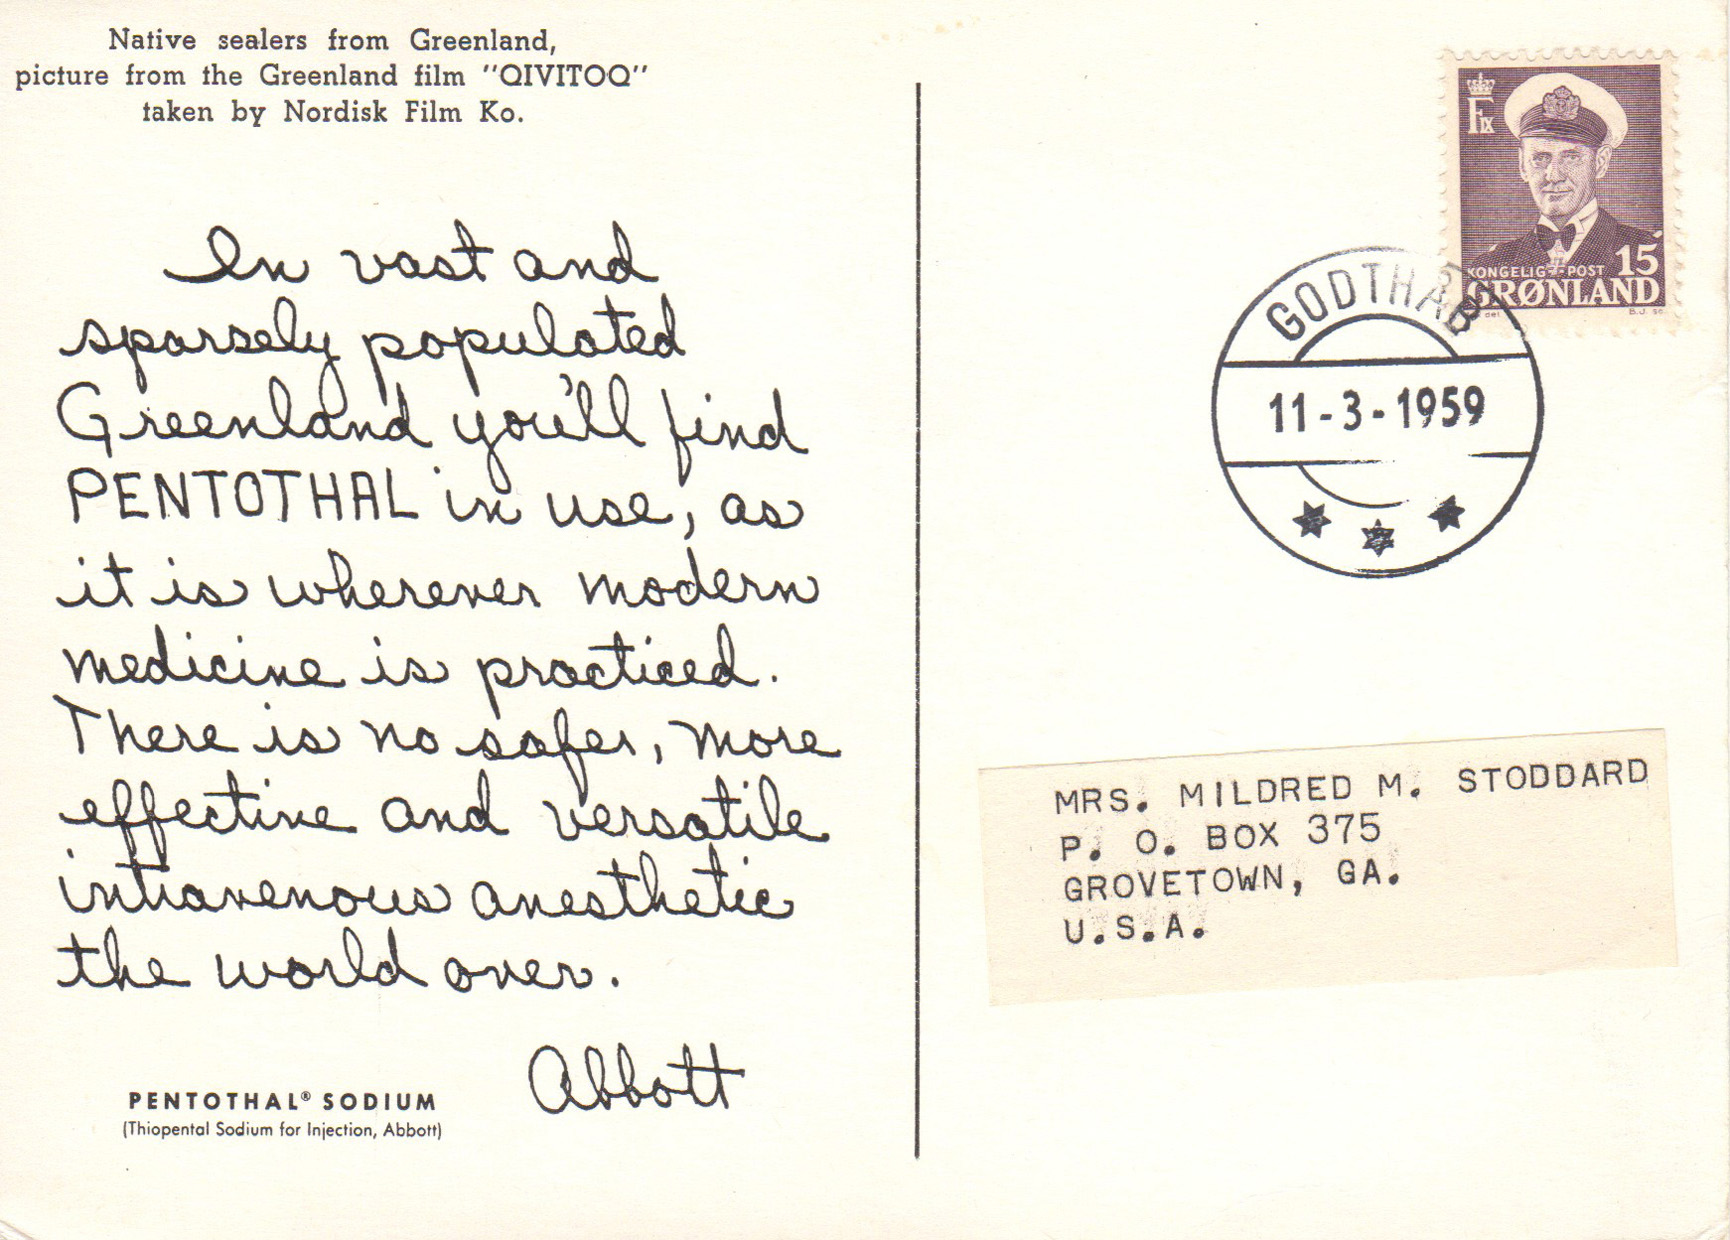 Native sealers from Greenland,
picture from the Greenland film "QIVITOQ"
taken by Nordisk Film Ko.
In vast and
sparsely populated
Greenland you'll find
PENTOTHAL in use, as
it is wherever modern
medicine is practiced.
There is no safer, more
effective and versatile
intravenous anesthetic
the world over.
Abbott
PENTOTHAL® SODIUM
(Thiopental Sodium for Injection, Abbott)
F IX
KONGELIG POST 15
GRØNLAND
del. B.J. sc.
GODTHÅB
11-3-1959
MRS. MILDRED M. STODDARD
P. O. BOX 375
GROVETOWN, GA.
U.S.A.